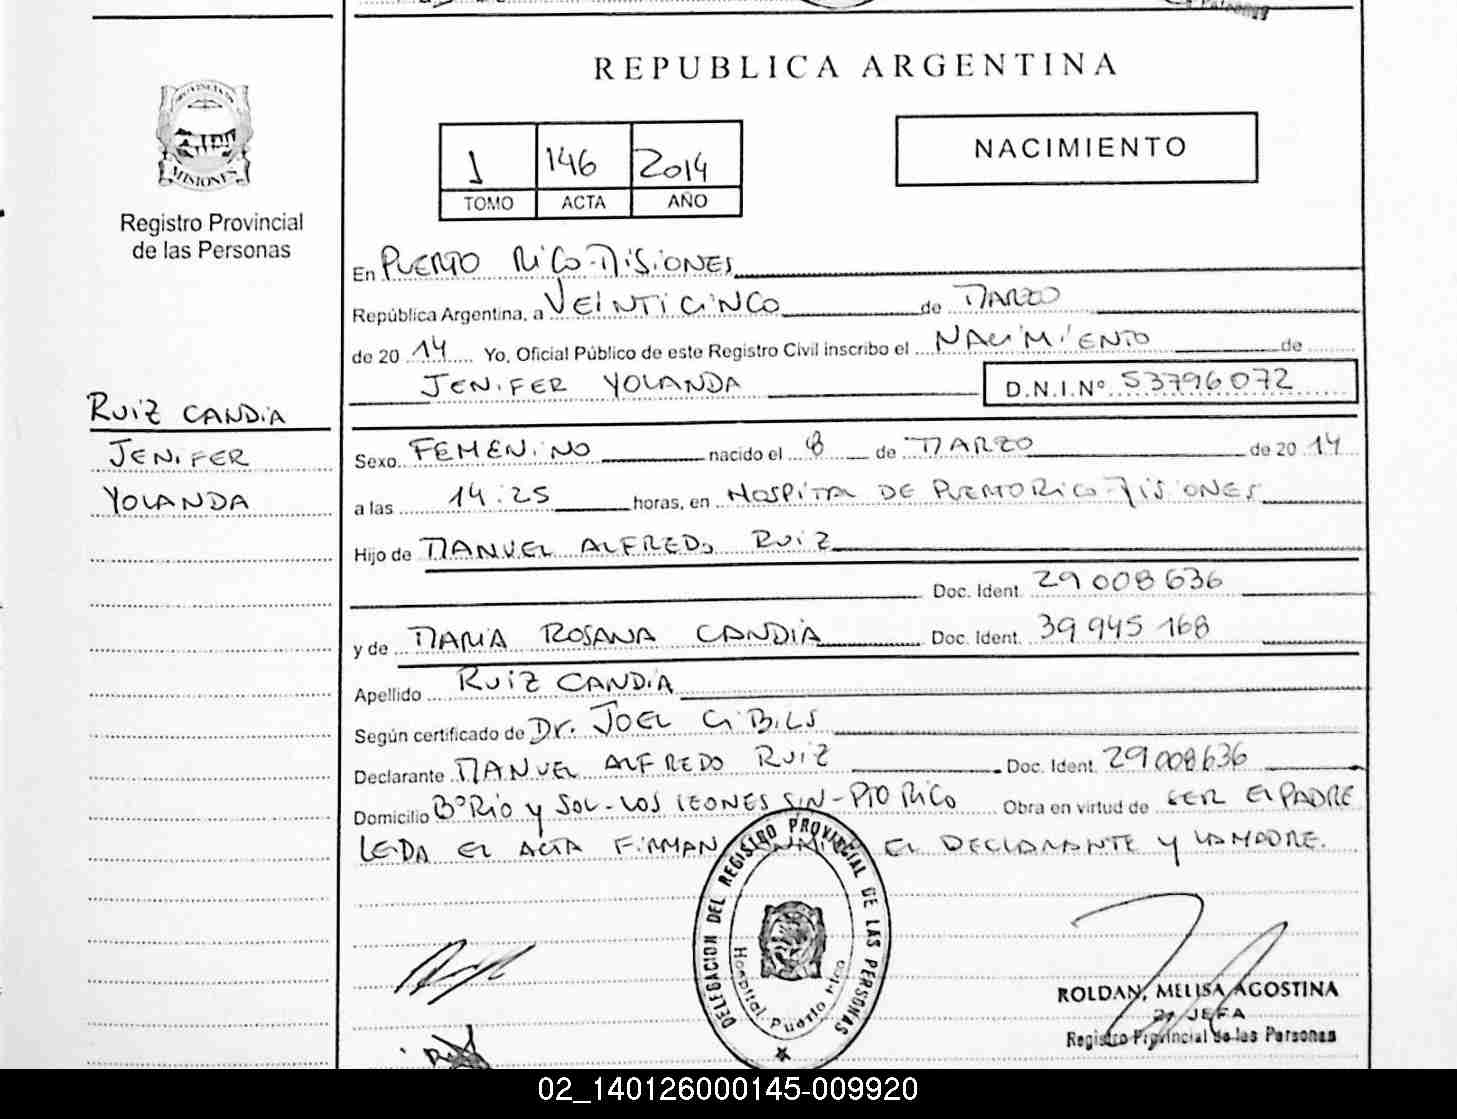 REPUBLICA ARGENTINA
PROVINCIA DE
MISIONES
Registro Provincial
de las Personas
1 146 2014
TOMO ACTA AÑO
NACIMIENTO
En PUERTO RICO-MISIONES
República Argentina, a VEINTICINCO de MARZO
de 20 14 Yo, Oficial Público de este Registro Civil inscribo el NACIMIENTO de
JENIFER YOLANDA D.N.I.Nº 53796072
RUIZ CANDIA
JENIFER
YOLANDA
Sexo FEMENINO nacido el 8 de MARZO de 20 14
a las 14:25 horas, en HOSPITAL DE PUERTO RICO-MISIONES
Hijo de MANUEL ALFREDO RUIZ
Doc. Ident. 29 008 636
y de MARIA ROSANA CANDIA Doc. Ident. 39 945 168
Apellido RUIZ CANDIA
Según certificado de Dr. JOEL GIBILS
Declarante MANUEL ALFREDO RUIZ Doc. Ident. 29 008 636
Domicilio BºRIO y SOL-LOS LEONES S/N-PTO RICO Obra en virtud de SER EL PADRE
LEIDA EL ACTA FIRMAN EL DECLARANTE y LA MADRE.
DELEGACION DEL REGISTRO PROVINCIAL DE LAS PERSONAS
Hospital Puerto Rico
ROLDAN, MELISA AGOSTINA
JEFA
Registro Provincial de las Personas
02_140126000145-009920